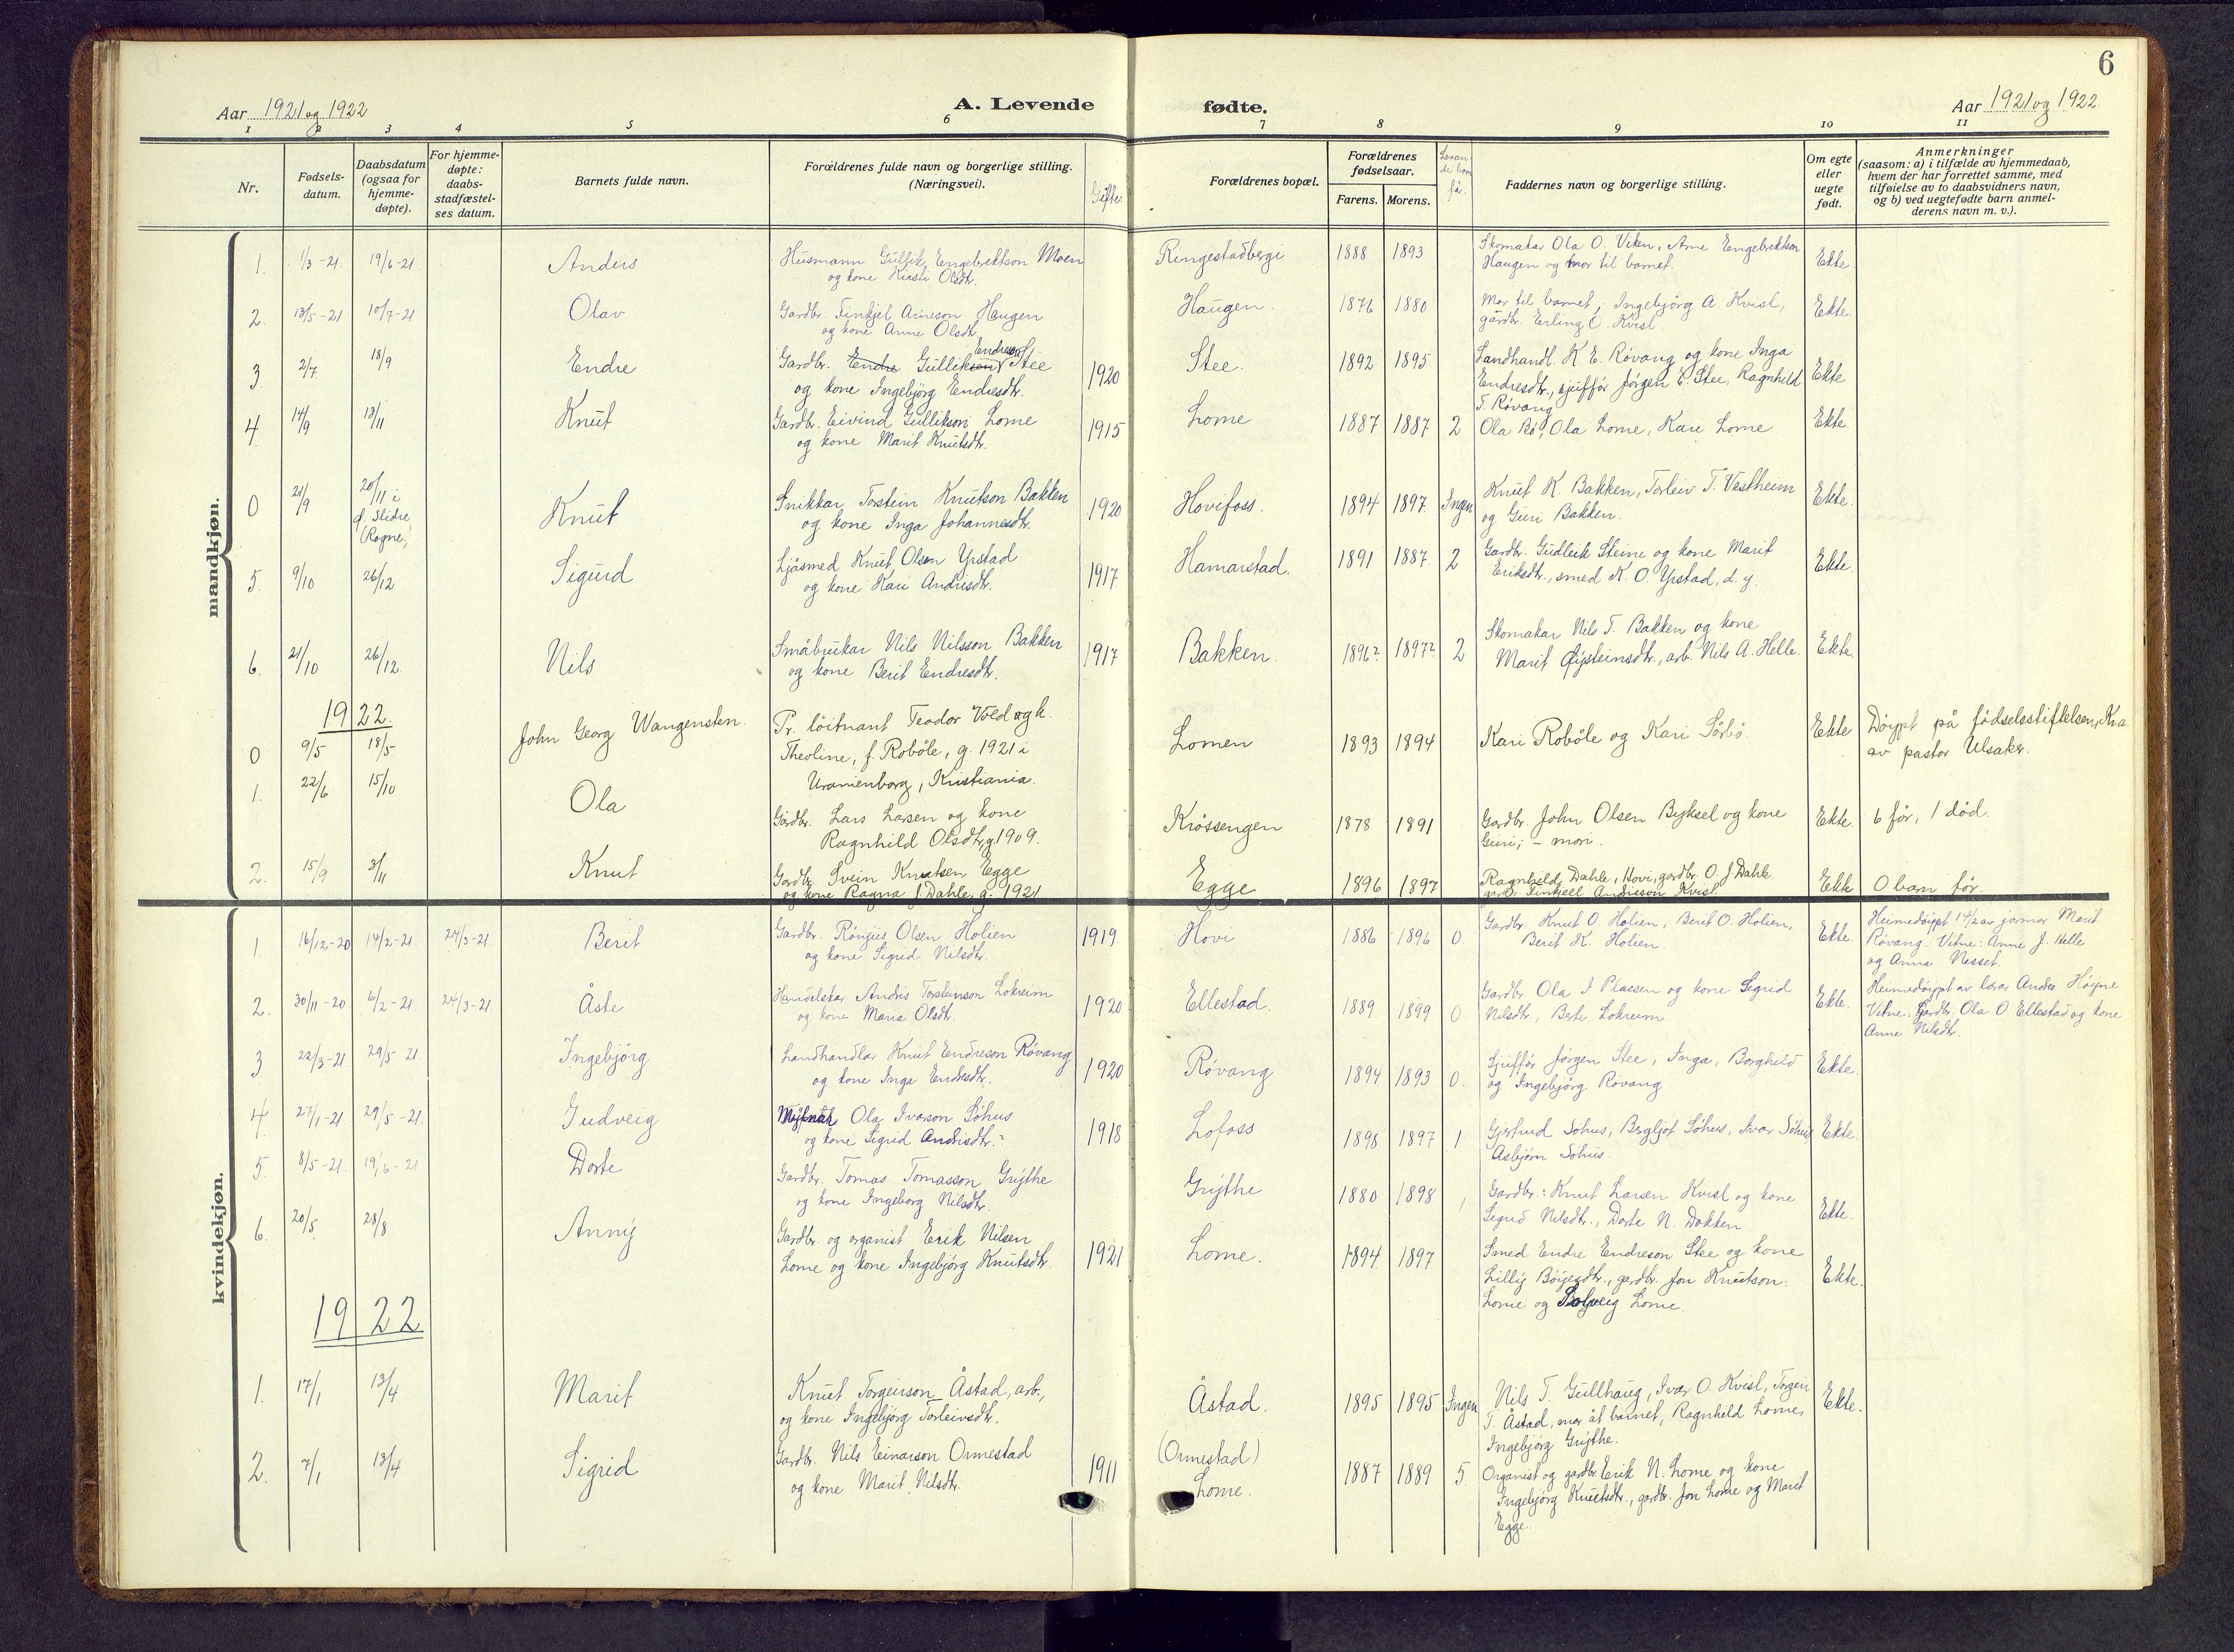 6
Aar 1921 og 1922
A. Levende
fødte.
Aar 1921 og 1922.
1 2 3 4 5 6 7 8 9 10 11
Nr.
Fødsels-
datum.
Daabsdatum
(ogsaa for
hjemme-
døpte).
For hjemme-
døpte:
daabs-
stadfæstel-
ses datum.
Barnets fulde navn.
Forældrenes fulde navn og borgerlige stilling.
(Næringsvei).
Gifte.
Forældrenes bopæl.
Forældrenes
fødselsaar.
Farens. Morens.
Faddernes navn og borgerlige stilling.
Om egte
eller
uegte
født.
Anmerkninger
(saasom: a) i tilfælde av hjemmedaab,
hvem der har forrettet samme, med
tilføielse av to daabsvidners navn,
og b) ved uegtefødte barn anmel-
derens navn m. v.).
mandkjøn.
1. 1/3-21 19/6-21 Anders
Husmann Gullik Engebrektson Moen
og kone Kirsti Olsdtr.
Ringestadbergi 1888 1893
Skomakar Ola O. Viken, Arne Engebrektson
Haugen og mor til barnet.
Ekte.
2. 13/5-21 10/7-21 Olav
Gardbr. Finkjel Arneson Haugen
og kone Anne Olsdtr.
Haugen. 1876 1880
Mor til barnet, Ingebjörg A. Kvisl,
gardbr. Erling O. Kvisl.
Ekte.
3 2/7 18/9 Endre
Gardbr. Endre Gullikson Endreson Stee
og kone Ingebjörg Endresdtr.
1920 Stee. 1892 1895
Landhandl. K. E. Rövang og kone Inga
Endresdtr., sjuffør Jørgen E. Stee, Ragnhild
T. Rövang
Ekte
4. 14/9 13/11 Knut
Gardbr. Eivind Gullikson Lome
og kone Marit Knutsdtr.
1915 Lome 1887 1887 2
Ola Bö, Ola Lome, Kari Lome
Ekte.
0 21/9 20/11 i
ø. Slidre
(Rogne)
Knut
Snikkar Torstein Knutson Bakken
og kone Inga Johannesdtr.
1920 Hovifoss. 1894 1897 Ingen
Knut K. Bakken, Torleiv T. Vestheim
og Guri Bakken.
Ekte.
5. 9/10 26/12 Sigurd
Ljåsmed Knut Olsen Yrstad
og kone Kari Andrisdtr.
1917 Hamarstad. 1891 1887 2
Gardbr. Gudleik Steine og kone Marit
Eriksdtr., smed K. O. Yrstad, d. y.
Ekte.
6. 21/10 26/12 Nils
Småbrukar Nils Nilsson Bakken
og kone Berit Endresdtr.
1917 Bakken. 1896? 1897? 2
Skomakar Nils T. Bakken og kone
Marit Øysteinsdtr., arb. Nils A. Helle.
Ekte.
1922.
0 9/5 18/5 John Georg Wangensten.
Pr. löitnant Teodor Vold og h.
Theoline, f. Roböle, g. 1921 i
Uranienborg, Kristiania.
Lomen 1893 1894
Kari Roböle og Kari Sörbö.
Ekte
Döypt på födselsstiftelsen, Kra.
av pastor Ulsaker.
1. 22/6 15/10 Ola
Gardbr. Lars Larsen og kone
Ragnhild Olsdtr, g. 1909.
Krössengen 1878 1891
Gardbr. John Olsen Byksel og kone
Guri; - mori.
Ekte. 6 för, 1 död.
2. 15/9 3/11 Knut
Gardbr. Svein Knutsen Egge
og kone Ragna J. Dahle, g. 1921
Egge 1896 1897
Ragnhild Dahle, Hovi, gardbr. O. J. Dahle
gardbr. Finkjell Andrisson Kvisl.
Ekte 0 barn för.
kvindekjøn.
1. 16/12-20 14/2-21. 24/3-21. Berit
Gardbr. Rönjus Olsen Holien
og kone Sigrid Nilsdtr.
1919. Hovi 1886 1896 0.
Gardbr. Knut O. Holien, Berit O. Holien,
Berit K. Holien.
Ekte.
Heimedöypt 14/2 av jormor Marit
Rövang. Vitne: Anne J. Helle
og Anna Nesset.
2. 30/11-20 6/2-21 24/3-21. Åste
Handelskar Andris Torsteinson Lokreim
og kone Maria Olsdtr.
1920 Ellestad. 1889 1899 0
Gardbr. Ola I Plassen og kone Sigrid
Nilsdtr., Berte Lokreim.
Ekte.
Heimedöypt av lærar Andres Höyne
Vitne: Gardbr. Ola O. Ellestad og kone
Anne Nilsdtr.
3 22/3-21 29/5 21. Ingebjörg
Landhandlar Knut Endreson Rövang
og kone Inga Endresdtr.
1920 Rövang 1894 1893 0.
Sjuffør Jörgen Stee, Inga, Borghild
og Ingebjörg Rövang.
Ekte.
4. 27/1-21 29/5-21. Gudveig
Mylnar Ola Ivarson Söhus
og kone Sigrid Andrisdtr.
1918 Lofoss 1898 1897 1
Gjertrud Söhus, Bergljot Söhus, Ivar Söhus
Asbjörn Söhus.
Ekte.
5 8/5-21. 19/6-21 Dorte
Gardbr. Tomas Tomasson Grythe
og kone Ingeborg Nilsdtr.
Grythe 1880 1898
Gardbr.: Knut Larsen Kvisl og kone
Sigrid Nilsdtr., Dorte N. Dokken
Ekte.
6. 20/5 28/8 Anny
Gardbr og organist Erik Nilsen
Lome og kone Ingebjörg Knutsdtr.
1921 Lome. 1894 1897
Smed Endre Endreson Stee og kone
Lilly Böyesdtr., gardbr. Jon Knutson
Lome og Solveig Lome.
Ekte.
1922
1. 17/1 13/4 Marit
Knut Torgeirson Åstad, arb.,
og kone Ingebjörg Torleivsdtr.
Åstad. 1895 1895 Ingen
Nils T. Gullhaug, Ivar O. Kvisl, Torgeir
T. Åstad, mor åt barnet, Ragnhild Lome,
Ingebjörg Grythe.
Ekte.
2. 7/1 13/4 Sigrid
Gardbr. Nils Einarson Ormestad
og kone Marit Nilsdtr.
1911 (Ormestad)
Lome. 1887 1889 5.
Organist og gardbr. Erik N. Lome og kone
Ingebjörg Knutsdtr., gardbr. Jon Lome og Marit
Egge.